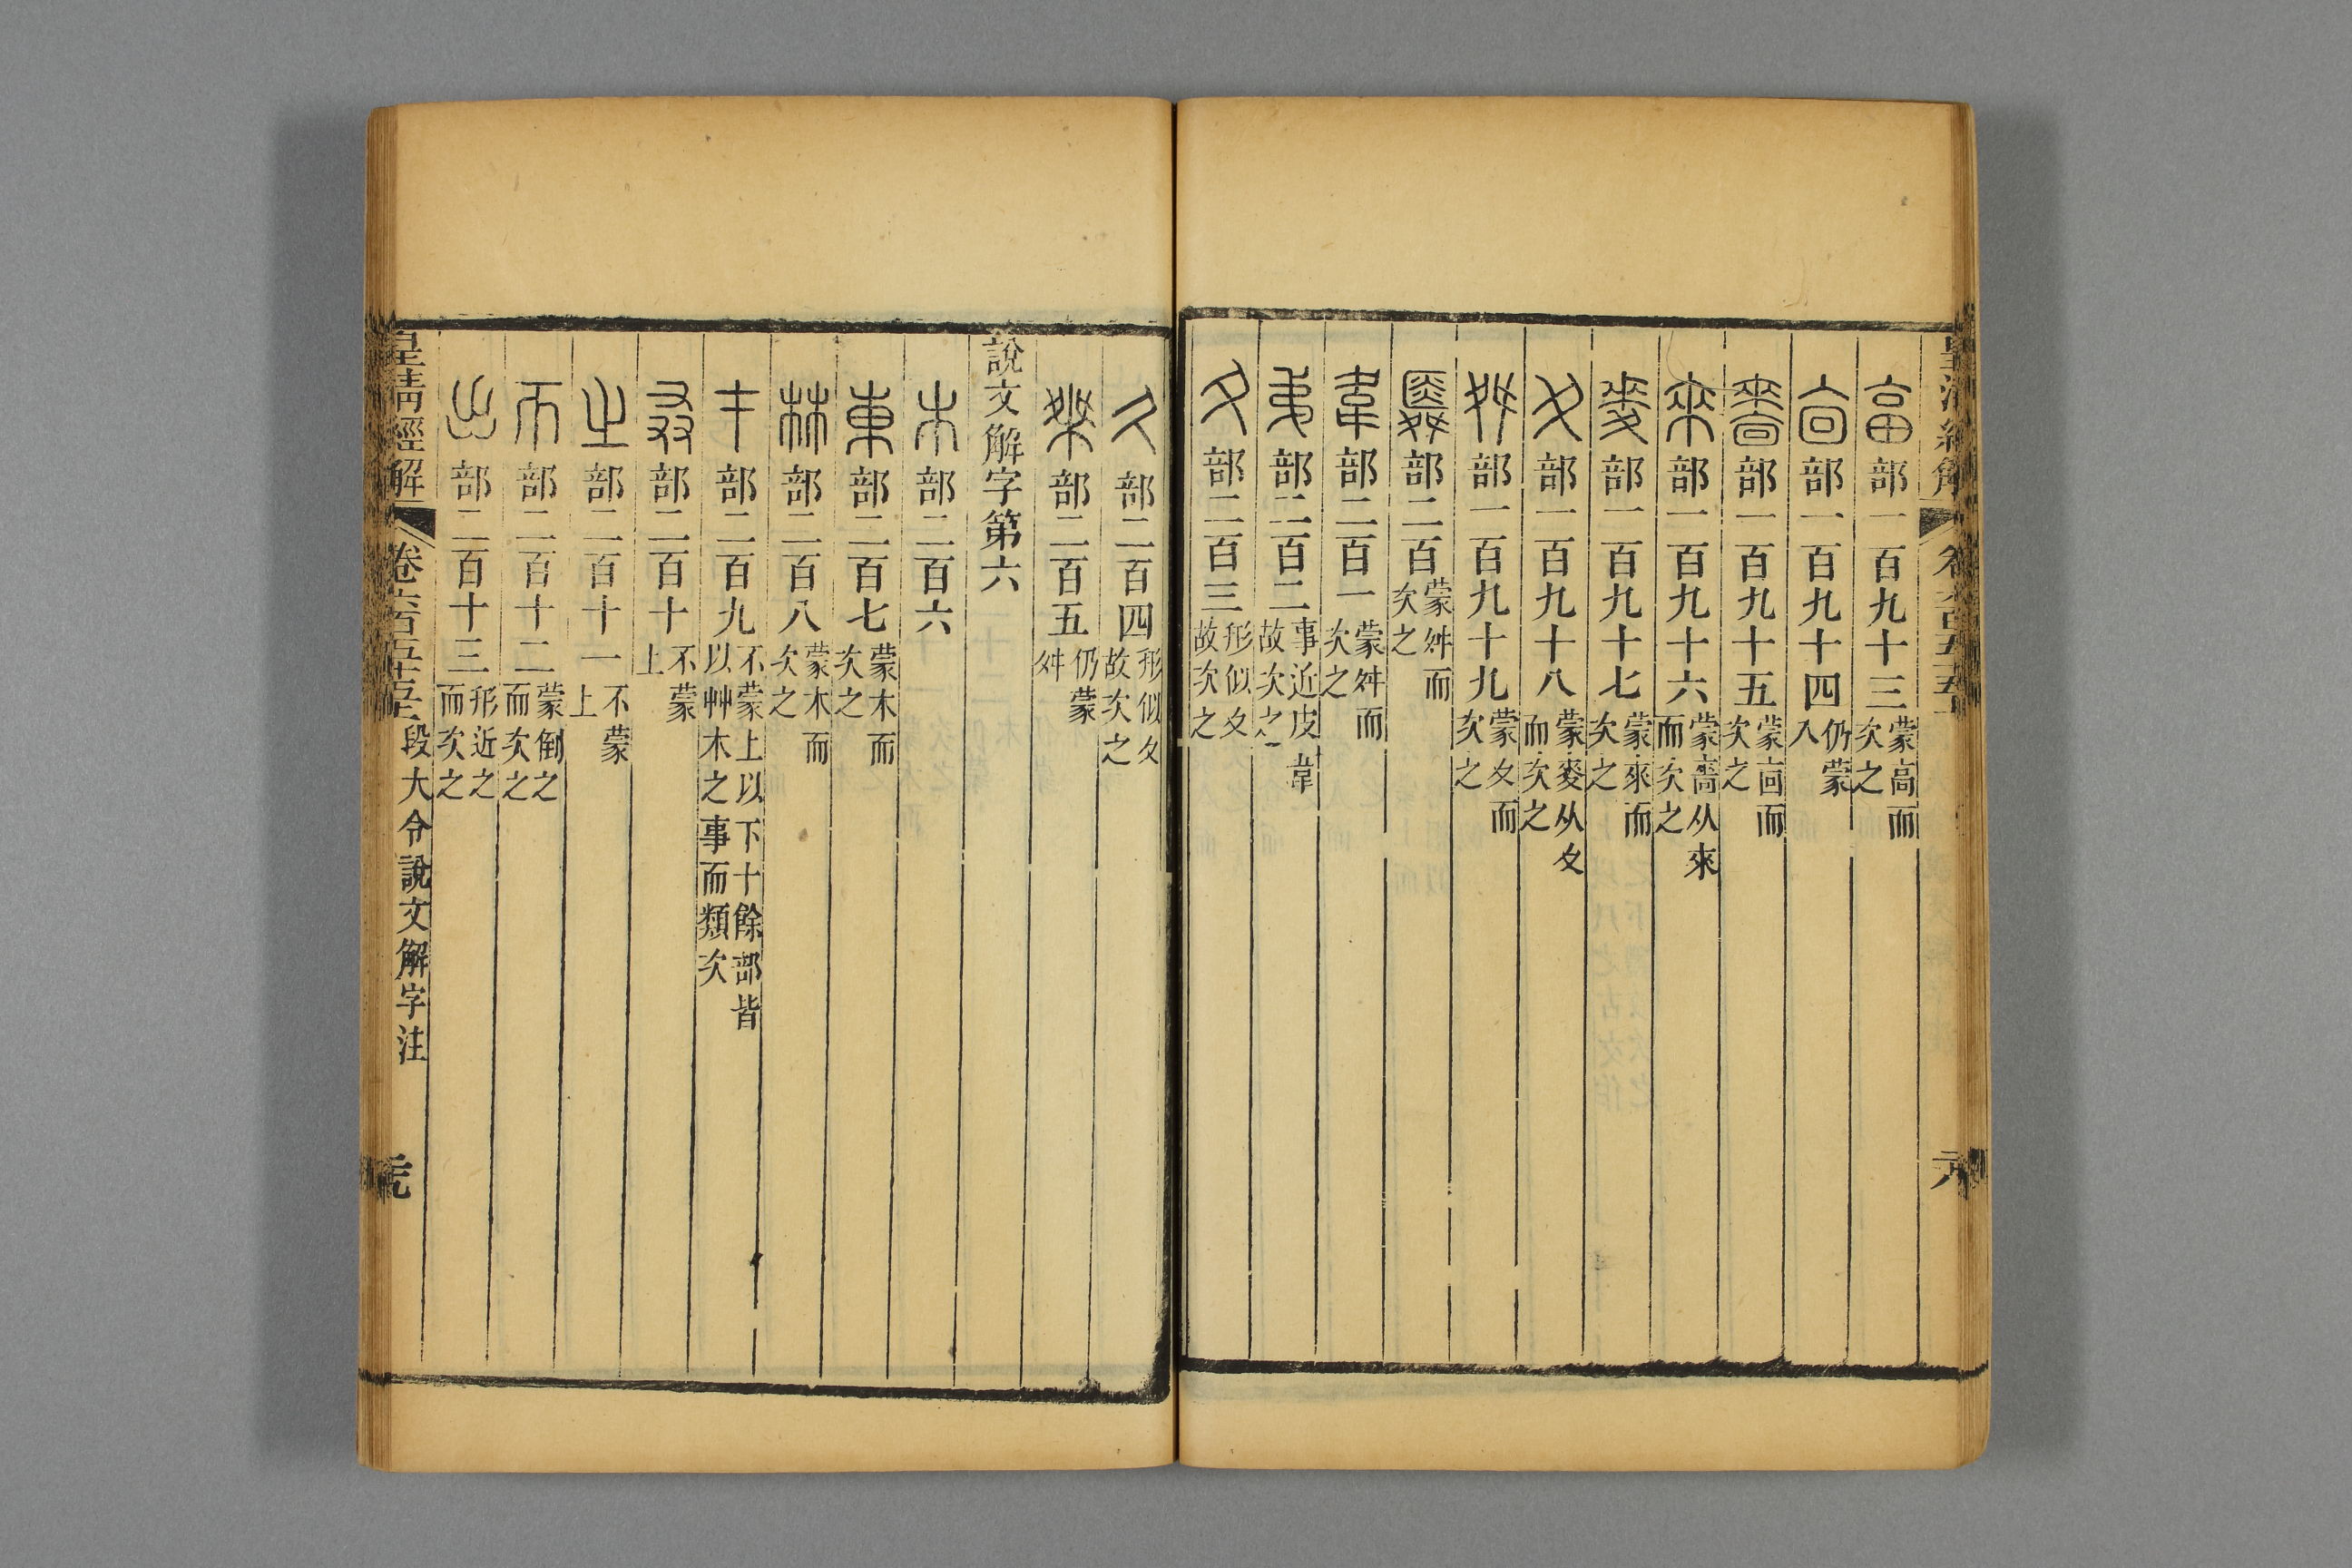 畐部一百九十三蒙高而次之
㐭部一百九十四仍蒙入
嗇部一百九十五蒙㐭而次之
來部一百九十六蒙嗇从來而次之
麥部一百九十七蒙來而次之
夊部一百九十八蒙麥从夊而次之
舛部一百九十九蒙夊而次之
䑞部二百蒙舛而次之
韋部二百一蒙舛而次之
弟部二百二事近皮韋故次之
夂部二百三形似夊故次之
久部二百四形似夂故次之
桀部二百五仍蒙舛
說文解字第六
木部二百六
東部二百七蒙木而次之
林部二百八蒙木而次之
才部二百九不蒙上以下十餘部皆以艸木之事而類次
叒部二百十不蒙上
之部二百十一不蒙上
帀部二百十二蒙倒之而次之
出部二百十三形近之而次之
皇清經解 卷六百五十五 段大令說文解字注